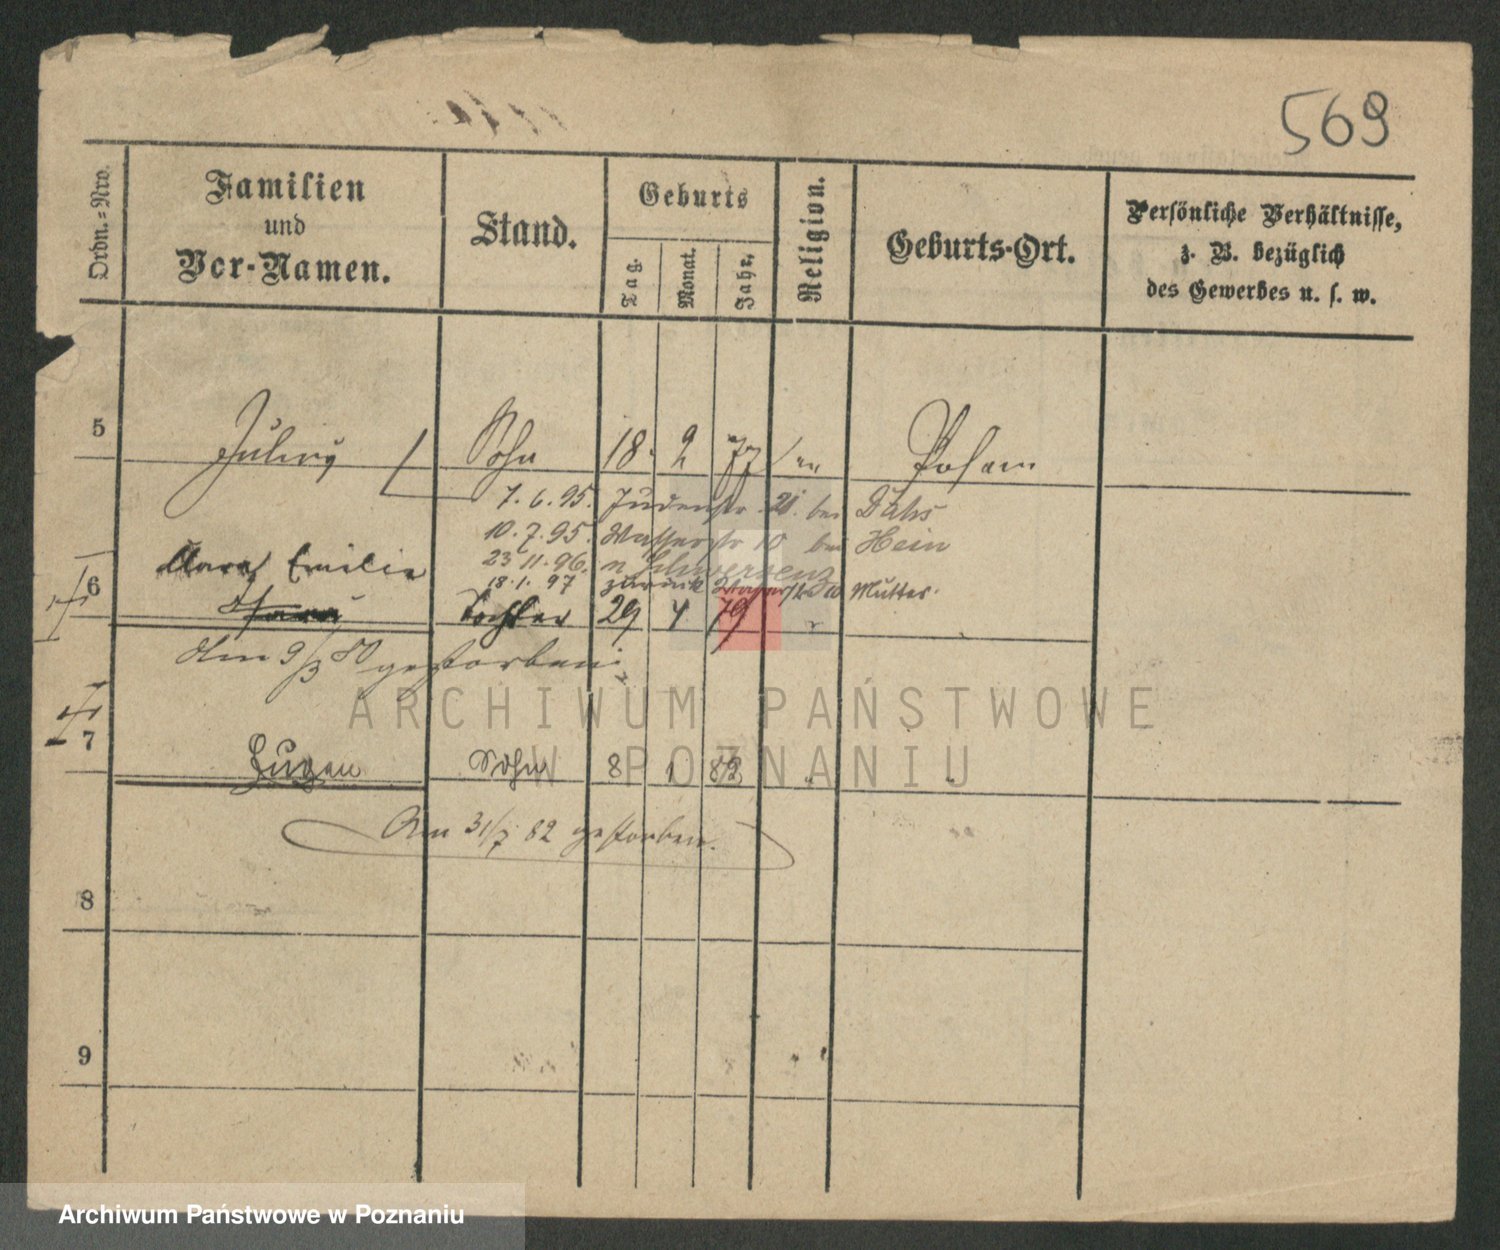 569
Ordn.=Nro.
Familien
und
Vor-Namen.
Stand.
Geburts
Tag.
Monat.
Jahr.
Religion.
Geburts-Ort.
Persönliche Verhältnisse,
z. B. bezüglich
des Gewerbes u. s. w.
5 Julius Sohn 18. 2 77 Posen
7.6.95. Judenstr. 21. bei Dahs
10.7.95. Wasserstr 10 bei Hein
23 11.96. n Schwersenz
18.1.97 zurück Wasserstr 10 Mutter.
Clara Emilie
6 Tochter 29 4 79
Am 9/3 80 gestorben
7 Eugen Sohn 8 1 82 "
Am 31/7 82 gestorben.
8
9
ARCHIWUM PAŃSTWOWE
W POZNANIU
Archiwum Państwowe w Poznaniu